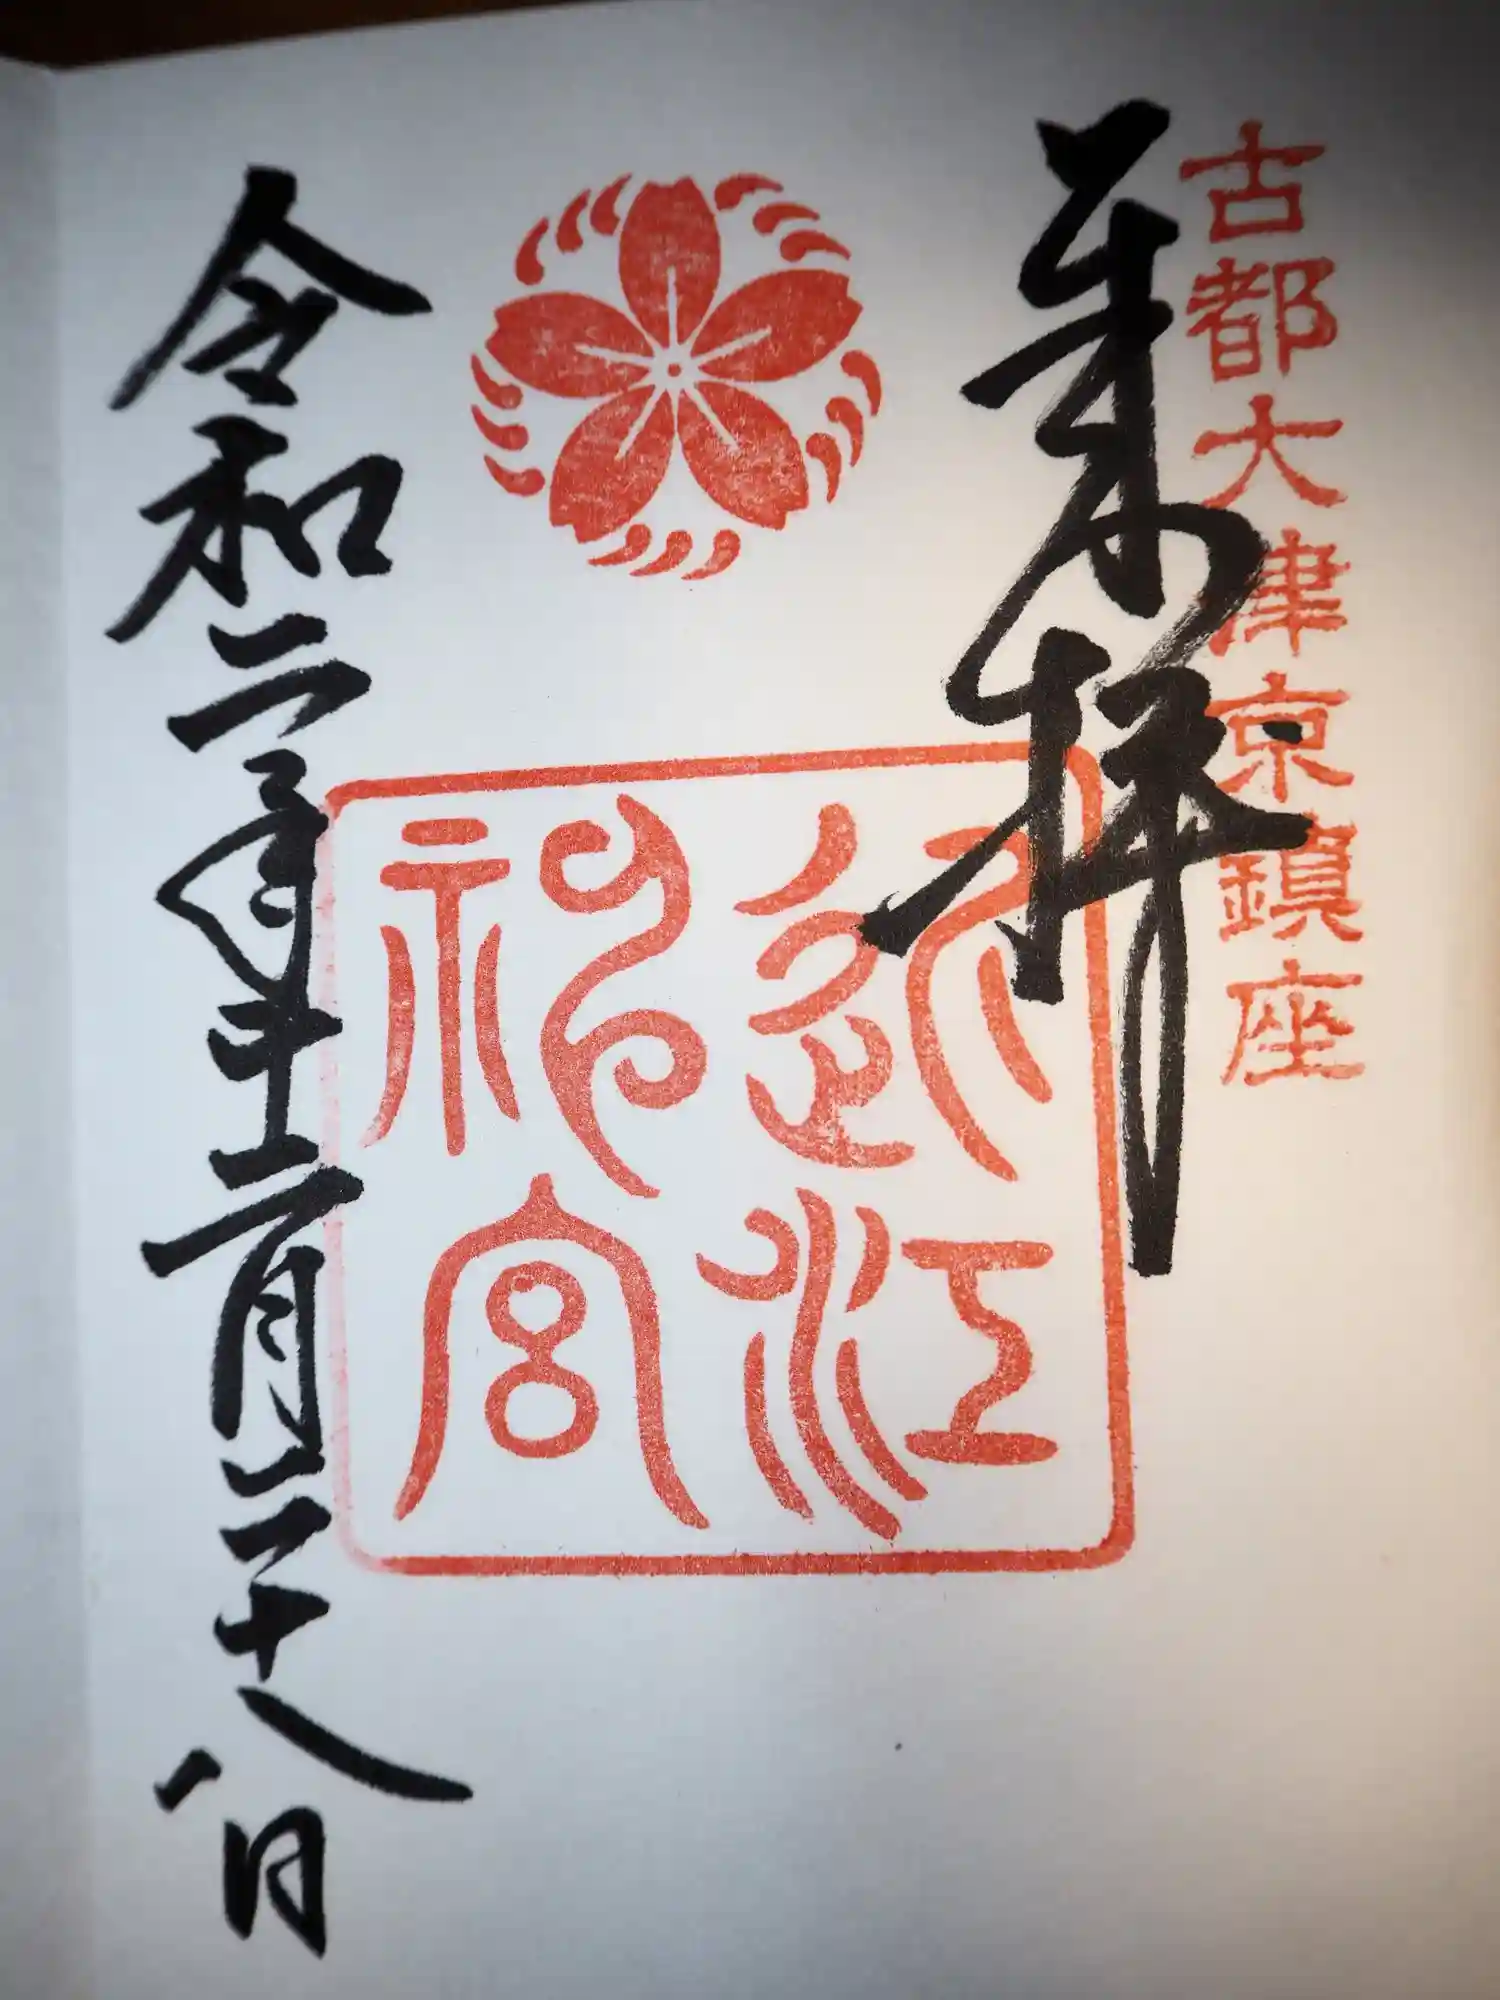 古都大津京鎮座
奉拝
近江
神宮
令和二年十二月二十八日